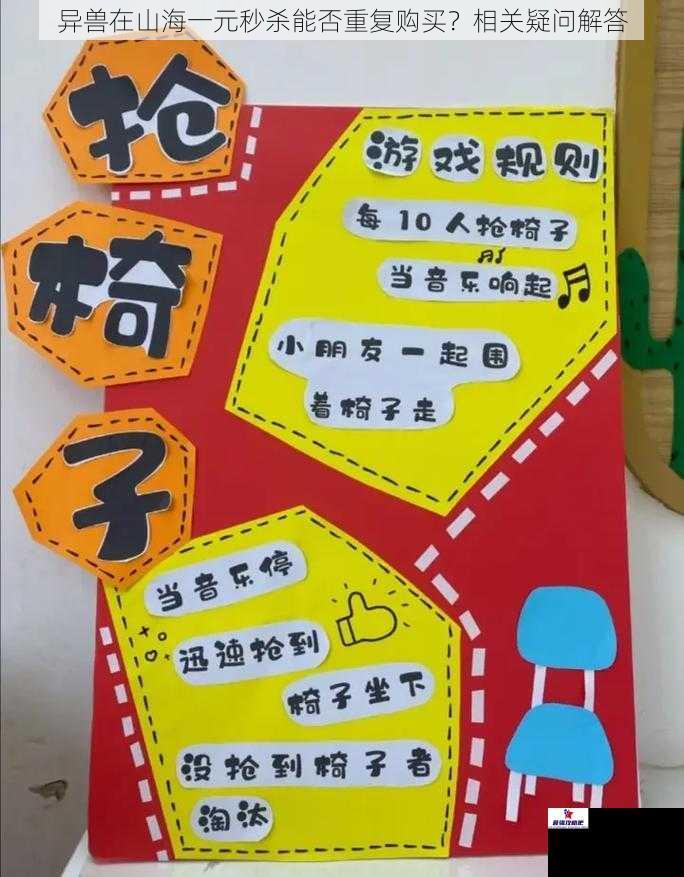 异兽在山海一元秒杀能否重复购买？相关疑问解答
抢
椅
子
游戏规则
每10人抢椅子
当音乐响起
小朋友一起围
着椅子走
当音乐停
迅速抢到
椅子坐下
没抢到椅子者
淘汰